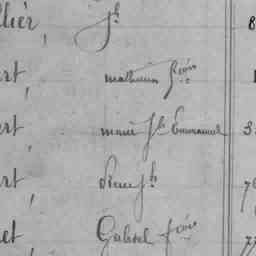 llier, Jh 8
rt, mathurin frçois 1
ert, marie Jh Emmanuel 3
rt, Pierre Jh 7
et, Gabriel frçois 77